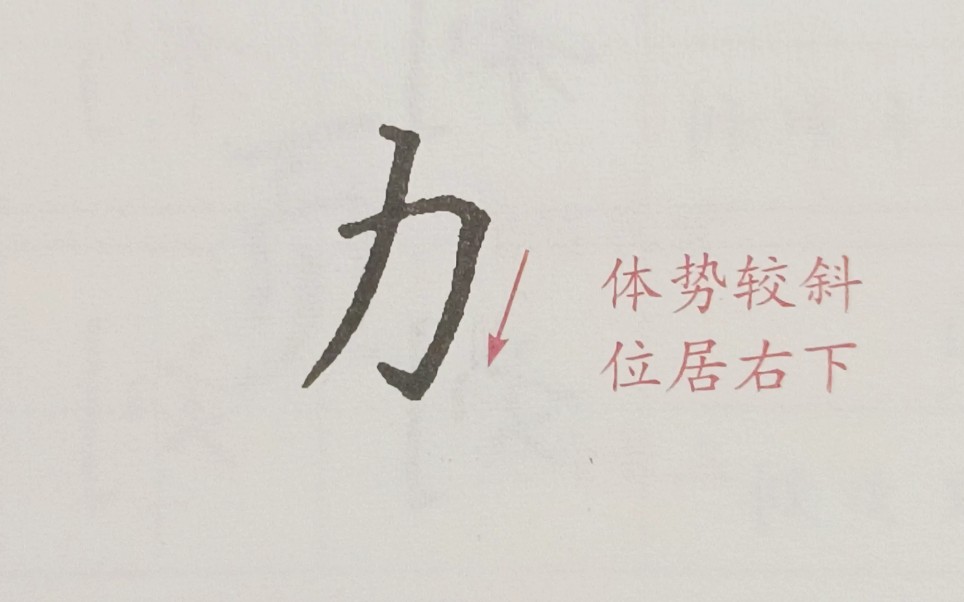 力
体势较斜
位居右下